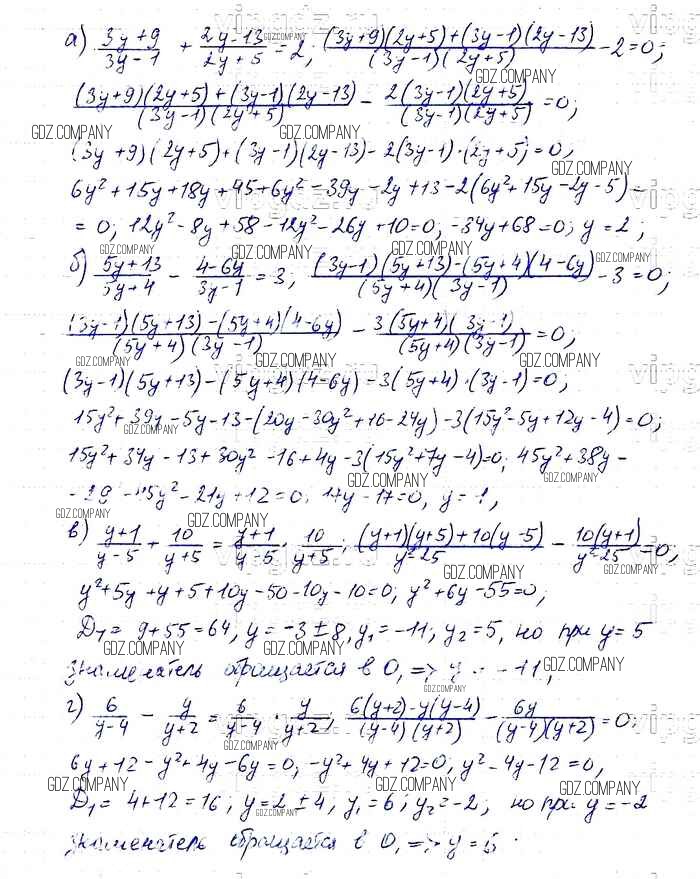 а) (3y+9)/(3y-1) + (2y-13)/(2y+5) = 2; ((3y+9)(2y+5)+(3y-1)(2y-13))/((3y-1)(2y+5)) - 2 = 0;
((3y+9)(2y+5)+(3y-1)(2y-13))/((3y-1)(2y+5)) - (2(3y-1)(2y+5))/((3y-1)(2y+5)) = 0;
(3y+9)(2y+5)+(3y-1)(2y-13)-2(3y-1)·(2y+5)=0;
6y²+15y+18y+45+6y²-39y-2y+13-2(6y²+15y-2y-5)=
=0; 12y²-8y+58-12y²-26y+10=0; -34y+68=0; y=2;
б) (5y+13)/(5y+4) - (4-6y)/(3y-1) = 3; ((3y-1)(5y+13)-(5y+4)(4-6y))/((5y+4)(3y-1)) - 3 = 0;
((3y-1)(5y+13)-(5y+4)(4-6y))/((5y+4)(3y-1)) - (3(5y+4)(3y-1))/((5y+4)(3y-1)) = 0;
(3y-1)(5y+13)-(5y+4)(4-6y)-3(5y+4)·(3y-1)=0;
15y²+39y-5y-13-(20y-30y²+16-24y)-3(15y²-5y+12y-4)=0;
15y²+34y-13+30y²-16+4y-3(15y²+7y-4)=0; 45y²+38y-
-29-45y²-21y+12=0; 17y-17=0, y=1,
в) (y+1)/(y-5) + 10/(y+5) = (y+1)/(y-5) · 10/(y+5); ((y+1)(y+5)+10(y-5))/(y²-25) - (10(y+1))/(y²-25) = 0;
y²+5y+y+5+10y-50-10y-10=0; y²+6y-55=0;
D₁=9+55=64, y=-3±8, y₁=-11; y₂=5, но при y=5
знаменатель обращается в 0, => y=-11;
г) 6/(y-4) - y/(y+2) = 6/(y-4) · y/(y+2); (6(y+2)-y(y-4))/((y-4)(y+2)) - 6y/((y-4)(y+2)) = 0;
6y+12-y²+4y-6y=0; -y²+4y+12=0, y²-4y-12=0,
D₁=4+12=16; y=2±4, y₁=6; y₂=-2; но при y=-2
знаменатель обращается в 0, => y=6.
GDZ.COMPANY